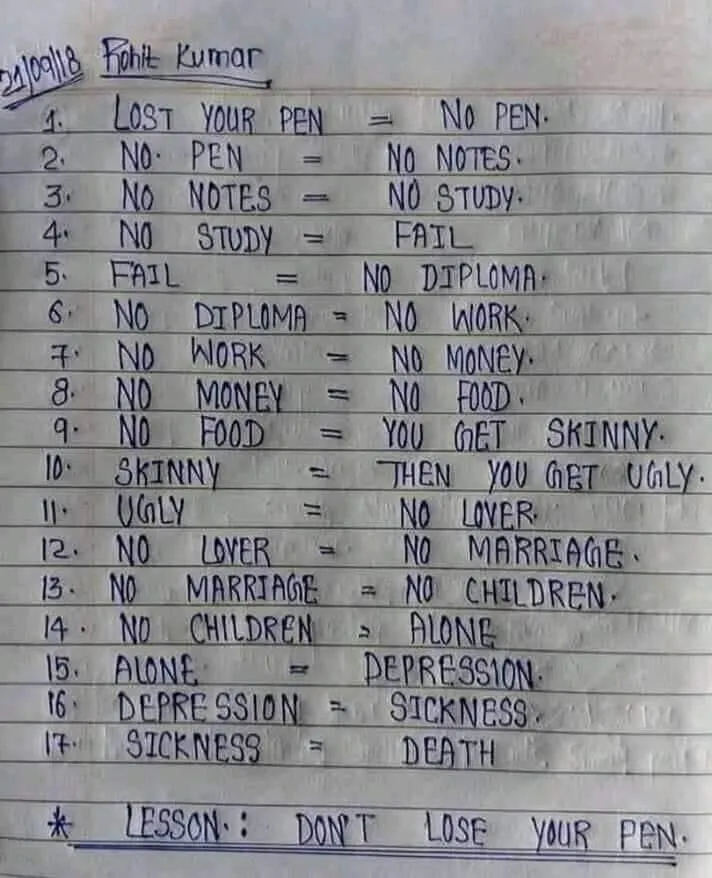 21/09/18 Rohit Kumar
1. LOST YOUR PEN = NO PEN.
2. NO. PEN = NO NOTES.
3. NO NOTES = NO STUDY.
4. NO STUDY = FAIL
5. FAIL = NO DIPLOMA.
6. NO DIPLOMA = NO WORK.
7. NO WORK = NO MONEY.
8. NO MONEY = NO FOOD.
9. NO FOOD = YOU GET SKINNY.
10. SKINNY = THEN YOU GET UGLY.
11. UGLY = NO LOVER.
12. NO LOVER = NO MARRIAGE.
13. NO MARRIAGE = NO CHILDREN.
14. NO CHILDREN = ALONE
15. ALONE = DEPRESSION.
16. DEPRESSION = SICKNESS.
17. SICKNESS = DEATH
* LESSON.: DON'T LOSE YOUR PEN.